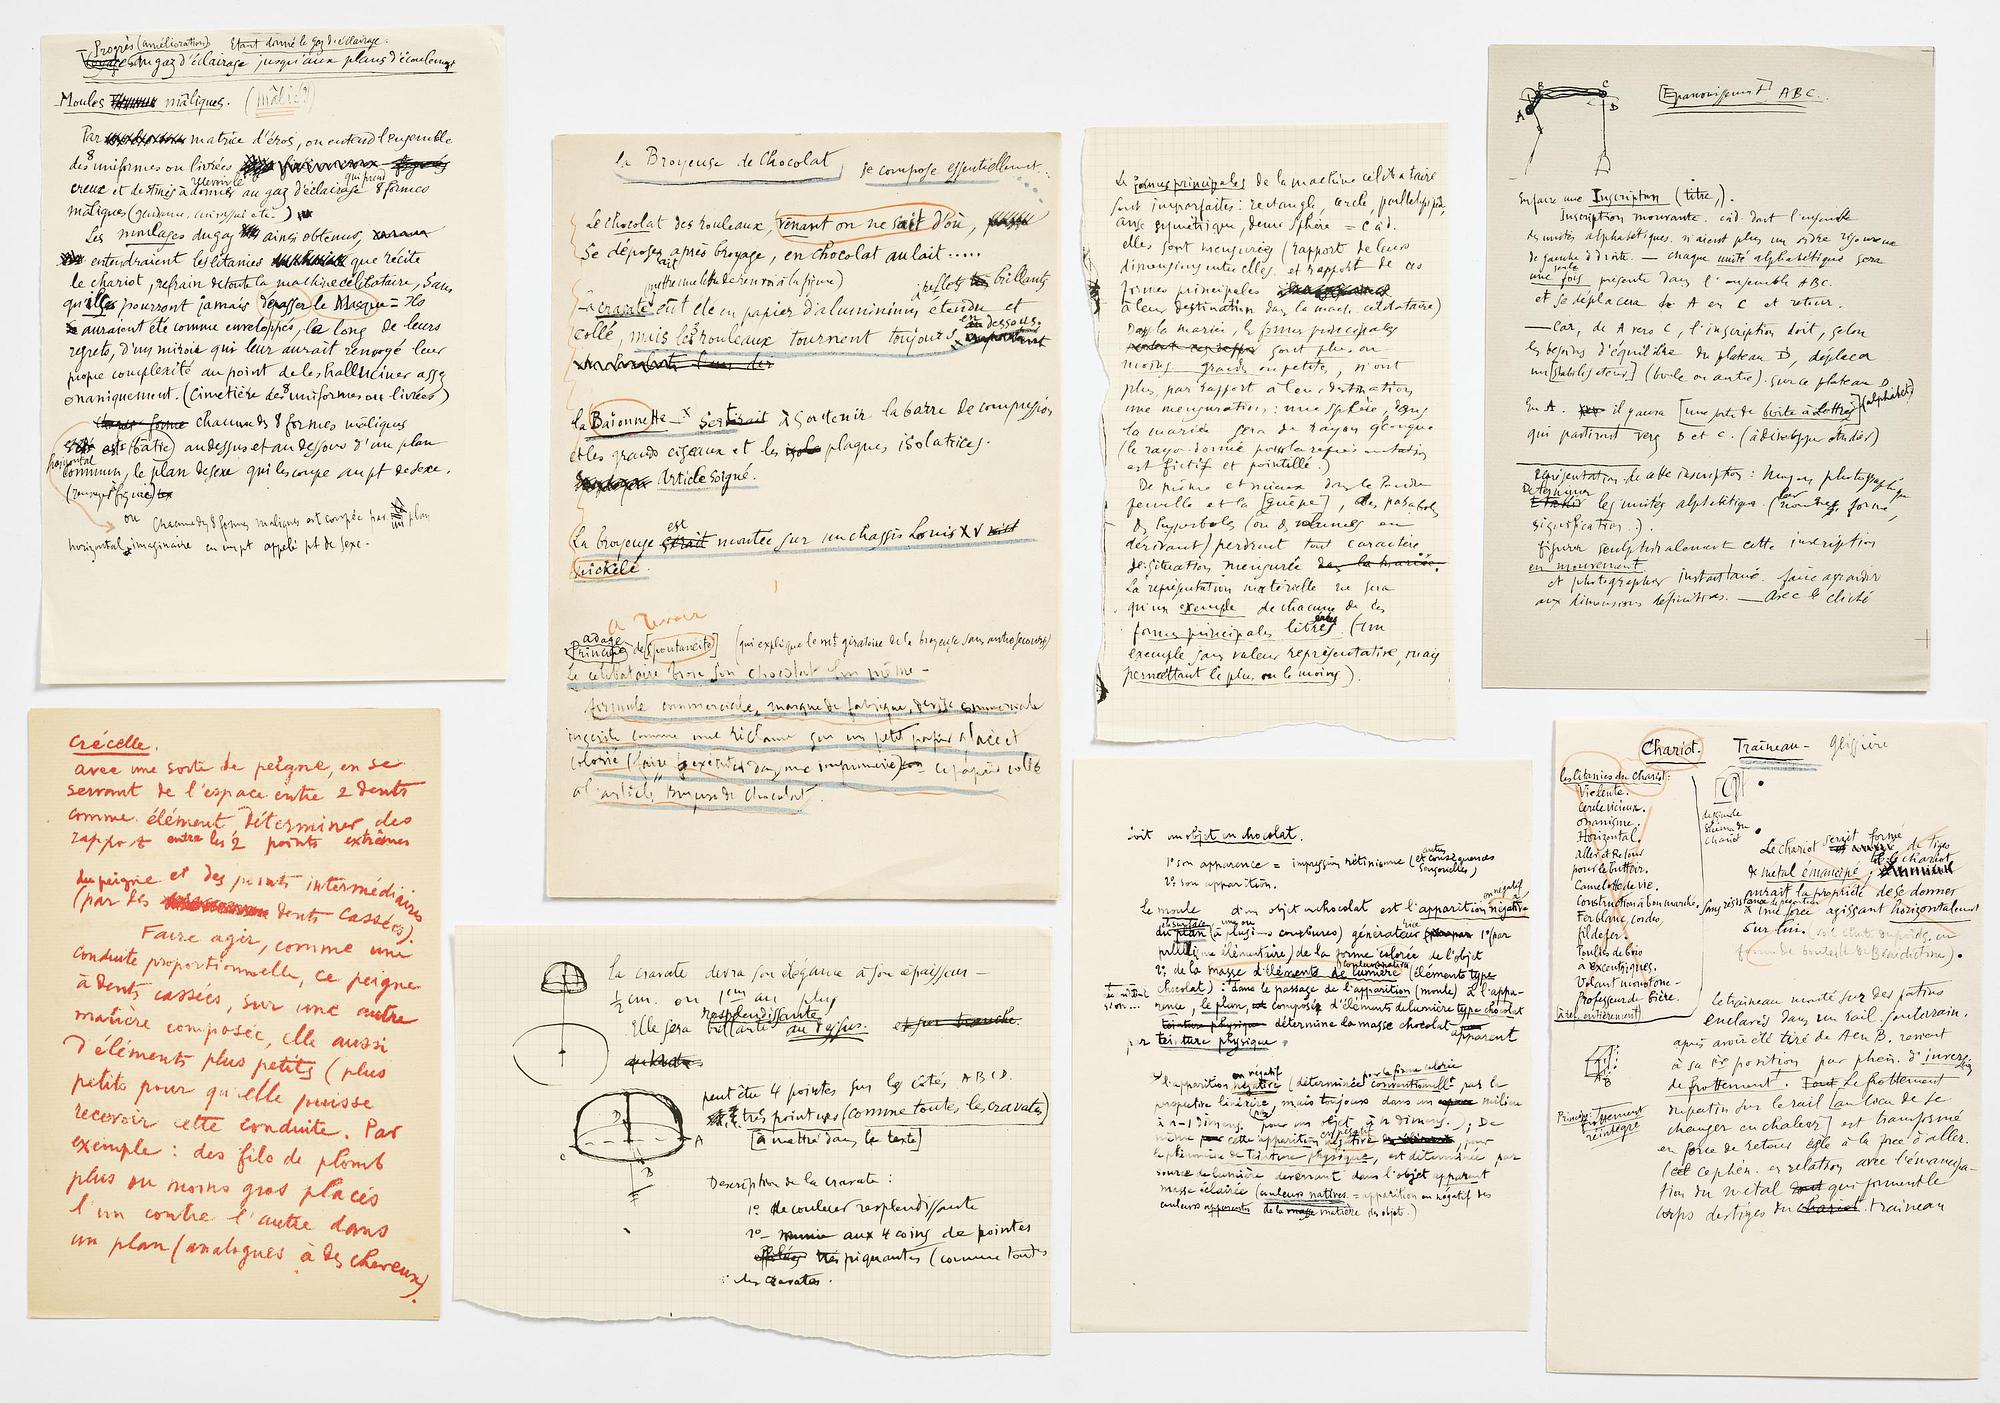 Progrès (amélioration). Etant donné le gaz d'éclairage.
du gaz d'éclairage jusqu'aux plans d'écoulement
Moules mâliques. (mâlic?)
Par matrice d'éros, on entend l'ensemble
des 8 uniformes ou livrées
creux et destinés à au gaz d'éclairage qui prend 8 formes
mâliques (gendarme, cuirassier etc.)
Les moulages du gaz ainsi obtenus,
entendraient les litanies que récite
le chariot, refrain de toute la machine célibataire, Sans
qu'ils pourront jamais dépasser le Masque = Ils
auraient été comme enveloppés, le long de leurs
regrets, d'un miroir qui leur aurait renvoyé leur
propre complexité au point de les halluciner assez
onaniquement. (Cimetière des 8 uniformes ou livrées)
chacune des 8 formes mâliques
est (bâtie) au dessus et au dessous d'un plan
horizontal
commun, le plan de sexe qui les coupe au pt de sexe.
(renvoyer figure)
ou Chacune des 8 formes mâliques est coupée par un plan
horizontal imaginaire en un pt appelé pt de sexe.
Crécelle.
avec une sorte de peigne, en se
servant de l'espace entre 2 dents
comme élément, Déterminer des
rapport entre les 2 points extrêmes
du peigne et des points intermédiaires
(par des dents cassées).
Faire agir, comme une
conduite proportionnelle, ce peigne
à dents cassées, sur une autre
matière composée, elle aussi
D'éléments plus petits (plus
petits pour qu'elle puisse
recevoir cette conduite. Par
exemple : des fils de plomb
plus ou moins gros placés
l'un contre l'autre dans
un plan (analogues à des cheveux).
la Broyeuse de Chocolat se compose essentiellement...
Le chocolat des rouleaux, venant on ne sait d'où,
Se déposerait après broyage, en chocolat au lait.....
(mettre une lettre de renvoi à la figure) reflets brillants
La cravate eût été en papier d'aluminium étendu et
collé, mais les 3 rouleaux tournent toujours en dessous.
la Baïonnette x Sert à Soutenir la barre de compression
et les grands ciseaux et les plaques isolatrices.
Article soigné.
La broyeuse est montée sur un chassis Louis XV
nickelé.
A revoir
adage
Principe de [spontanéité] (qui explique le mt giratoire de la broyeuse sans autre secours)
Le célibataire broie son chocolat lui même -
formule commerciale, marque de fabrique, devise commerciale
inscrite comme une réclame sur un petit papier glacé et
colorié (faire exécuter dans une imprimerie) ce papier collé
à l'article Broyeuse de Chocolat.
la cravate devra son élégance à son épaisseur -
½ cm. ou 1 cm au plus
resplendissante
Elle sera brillante au dessus. et sur tranche.
peut être 4 pointes sur les côtés ABCD.
très pointues (comme toutes les cravates)
[à mettre dans le texte]
D
A
C
B
Description de la cravate :
1º de couleur resplendissante
2º aux 4 coins de pointes
très piquantes (comme toutes
les cravates.
Les formes principales de la machine célibataire
sont imparfaites : rectangle, cercle, parallélépipède,
anse symétrique, demi sphère = c à d.
elles sont mensurées (rapport de leurs
dimensions entre elles. et rapport de ces
formes principales
à leur destination dans la mach. célibataire)
Dans la mariée, les formes principales
sont plus ou
moins grandes ou petites, n'ont
plus, par rapport à leur destination
une mensuration : une sphère, dans
la mariée sera de rayon quelconque
(le rayon donné pour la représentation
est fictif et pointillé.)
De même et mieux dans le Pendu
femelle et la [guêpe], des paraboles
des hyperboles (ou des volumes en
dérivant) perdront tout caractère
de situation mensurée dans la mariée.
La représentation matérielle ne sera
qu'un exemple de chacune de ces
formes principales libres. (Un
exemple sans valeur représentative, mais
permettant le plus ou le moins).
Soit un objet en chocolat.
1º son apparence = impression rétinienne (et autres conséquences
sensorielles)
2º son apparition.
Le moule d'un objet en chocolat est l'apparition négative
du plan (à plusieurs courbures) générateur 1º (par
élémentaire) de la forme colorée de l'objet
2º de la masse d'éléments de lumière (éléments type
chocolat) : dans le passage de l'apparition (moule) à l'appa-
rence, le plan, composé d'éléments de lumière type chocolat
teinture physique détermine la masse chocolat apparent
par teinture physique
l'apparition négative (déterminée conventionellt par la
perspective linéaire, mais toujours dans un milieu
à n-1 dimens. pour un objet à n dimens. ; De
même cette apparition négative, pour
le phénomène de teinture physique, est déterminée par
source de lumière devenant dans l'objet apparent
masse éclairée (couleurs natives = apparition en négatif des
couleurs apparentes de la matière des objets.)
[Epanouissement] ABC.
A
B
C
D
En faire une Inscription (titre).
Inscription mouvante. càd. dont l'ensemble
des unités alphabétiques. n'aient plus un ordre rigoureux
de gauche à droite. — chaque unité alphabétique sera
une seule fois présente dans l'ensemble ABC.
et se déplacera de A en C et retour.
— Car, de A vers C, l'inscription doit, selon
les besoins d'équilibre du plateau D, déplacer
un [stabilisateur] (boule ou autre). sur ce plateau D
En A. il y aura [une sorte de boîte à lettres] (alphabet)
qui partiront vers B et C. (à développer étudier)
représentation de cette inscription : moyen photographique
Déterminer les unités alphabétiques (leur nombre, forme,
signification.).
figurer sculpturalement cette inscription
en mouvement
et photographier instantané. faire agrandir
aux dimensions définitives. — Avec le cliché
Chariot. Traîneau - glissière
les litanies du Chariot :
Vie lente.
Cercle vicieux.
Onanisme.
Horizontal.
aller et Retour
pour le buttoir.
Camelotte de vie.
Construction à bon marché.
Fer blanc, cordes,
fil de fer.
Poulies de bois
à excentriques.
Volant monotone.
Professeur de bière.
(à ref. entièrement)
Le chariot formé de tiges
de métal émancipé,
aurait la propriété de se donner
sans résistance de pesanteur
à une force agissant horizontalement
sur lui.
forme de bouteille de Bénédictine).
Le traîneau monté sur des patins
enclavés dans un rail. souterrain.
après avoir été tiré de A en B, revient
à sa 1ère position par phén. d'inversion
de frottement. Le frottement
du patin sur le rail [au lieu de se
changer en chaleur] est transformé
en force de retour égale à la force d'aller.
(ce phén. en relation avec l'émancipa-
tion du métal qui forme le
corps des tiges du traîneau
Principe : Frottement
réintégré
A
B